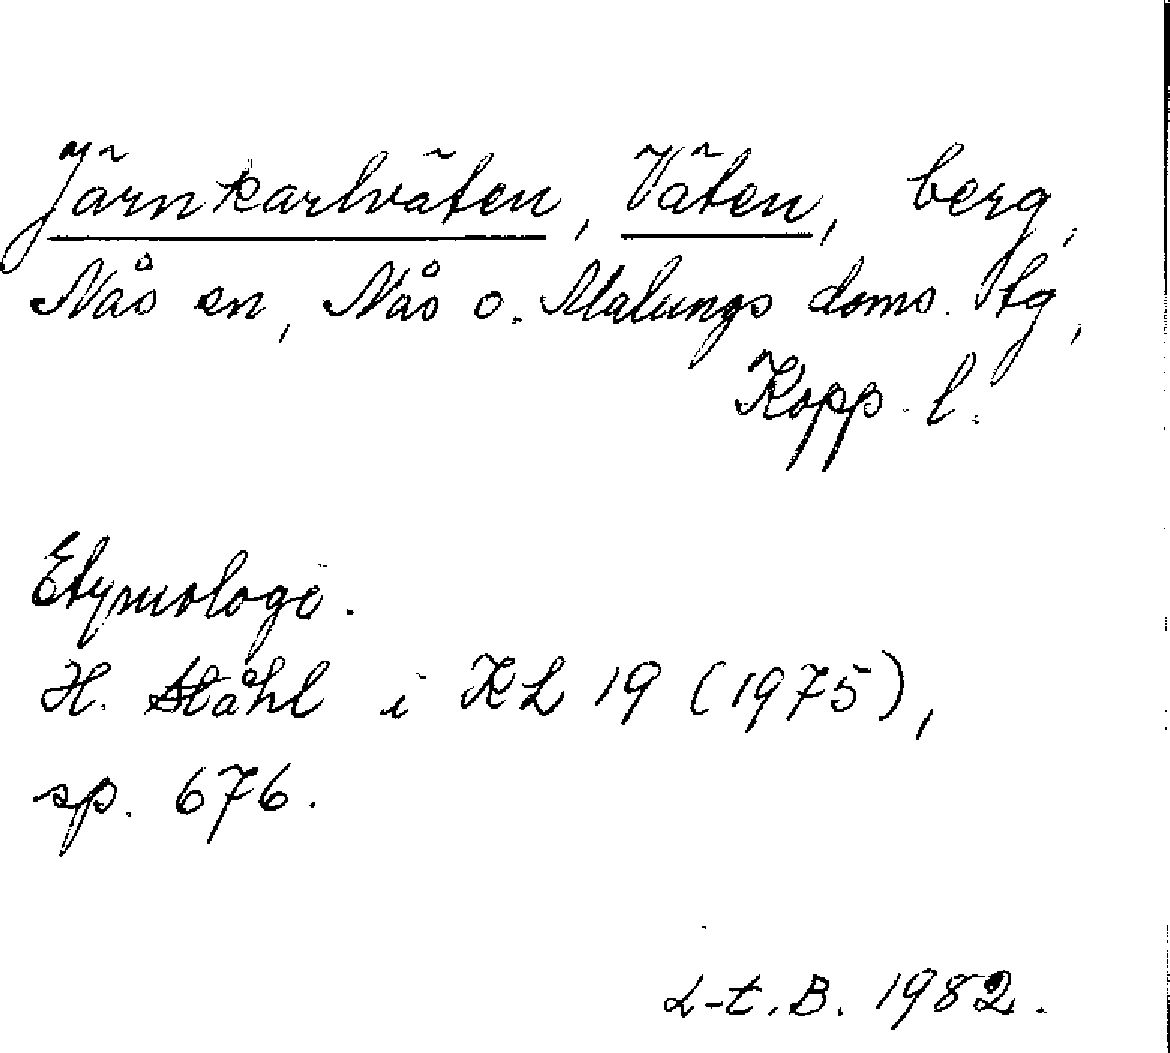 Järnkarlväten, Väten, berg,
Nås sn, Nås o. Malungs doms. tg,
Kopp. l.
Etymologi.
H. Ståhl i KL 19 (1975),
sp. 676.
L-t. B. 1982.